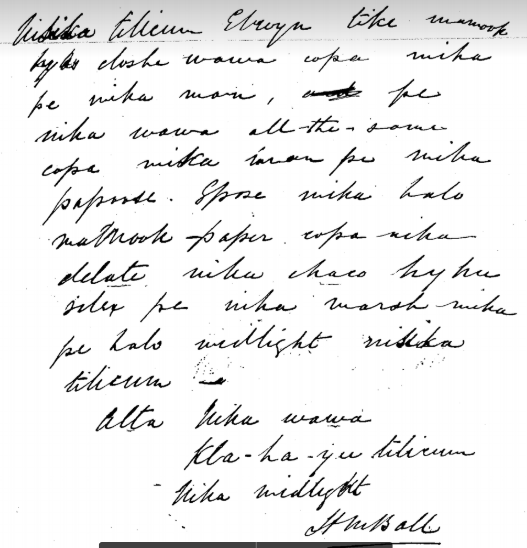 Nisika tilicum Elwyn tike mamook
hyas closhe wawa copa mika
pe mika man, and pe
nika wawa all-the-same
copa mika man pe mika
papoose. Spose mika halo
mamook paper copa nika
delate nika chaco hyhu
silex pe nika marsh mika
pe halo midlight nisika
tilicum
Alta Nika wawa
Kla-ha-yu tilicum
Nika midlight
H M Ball